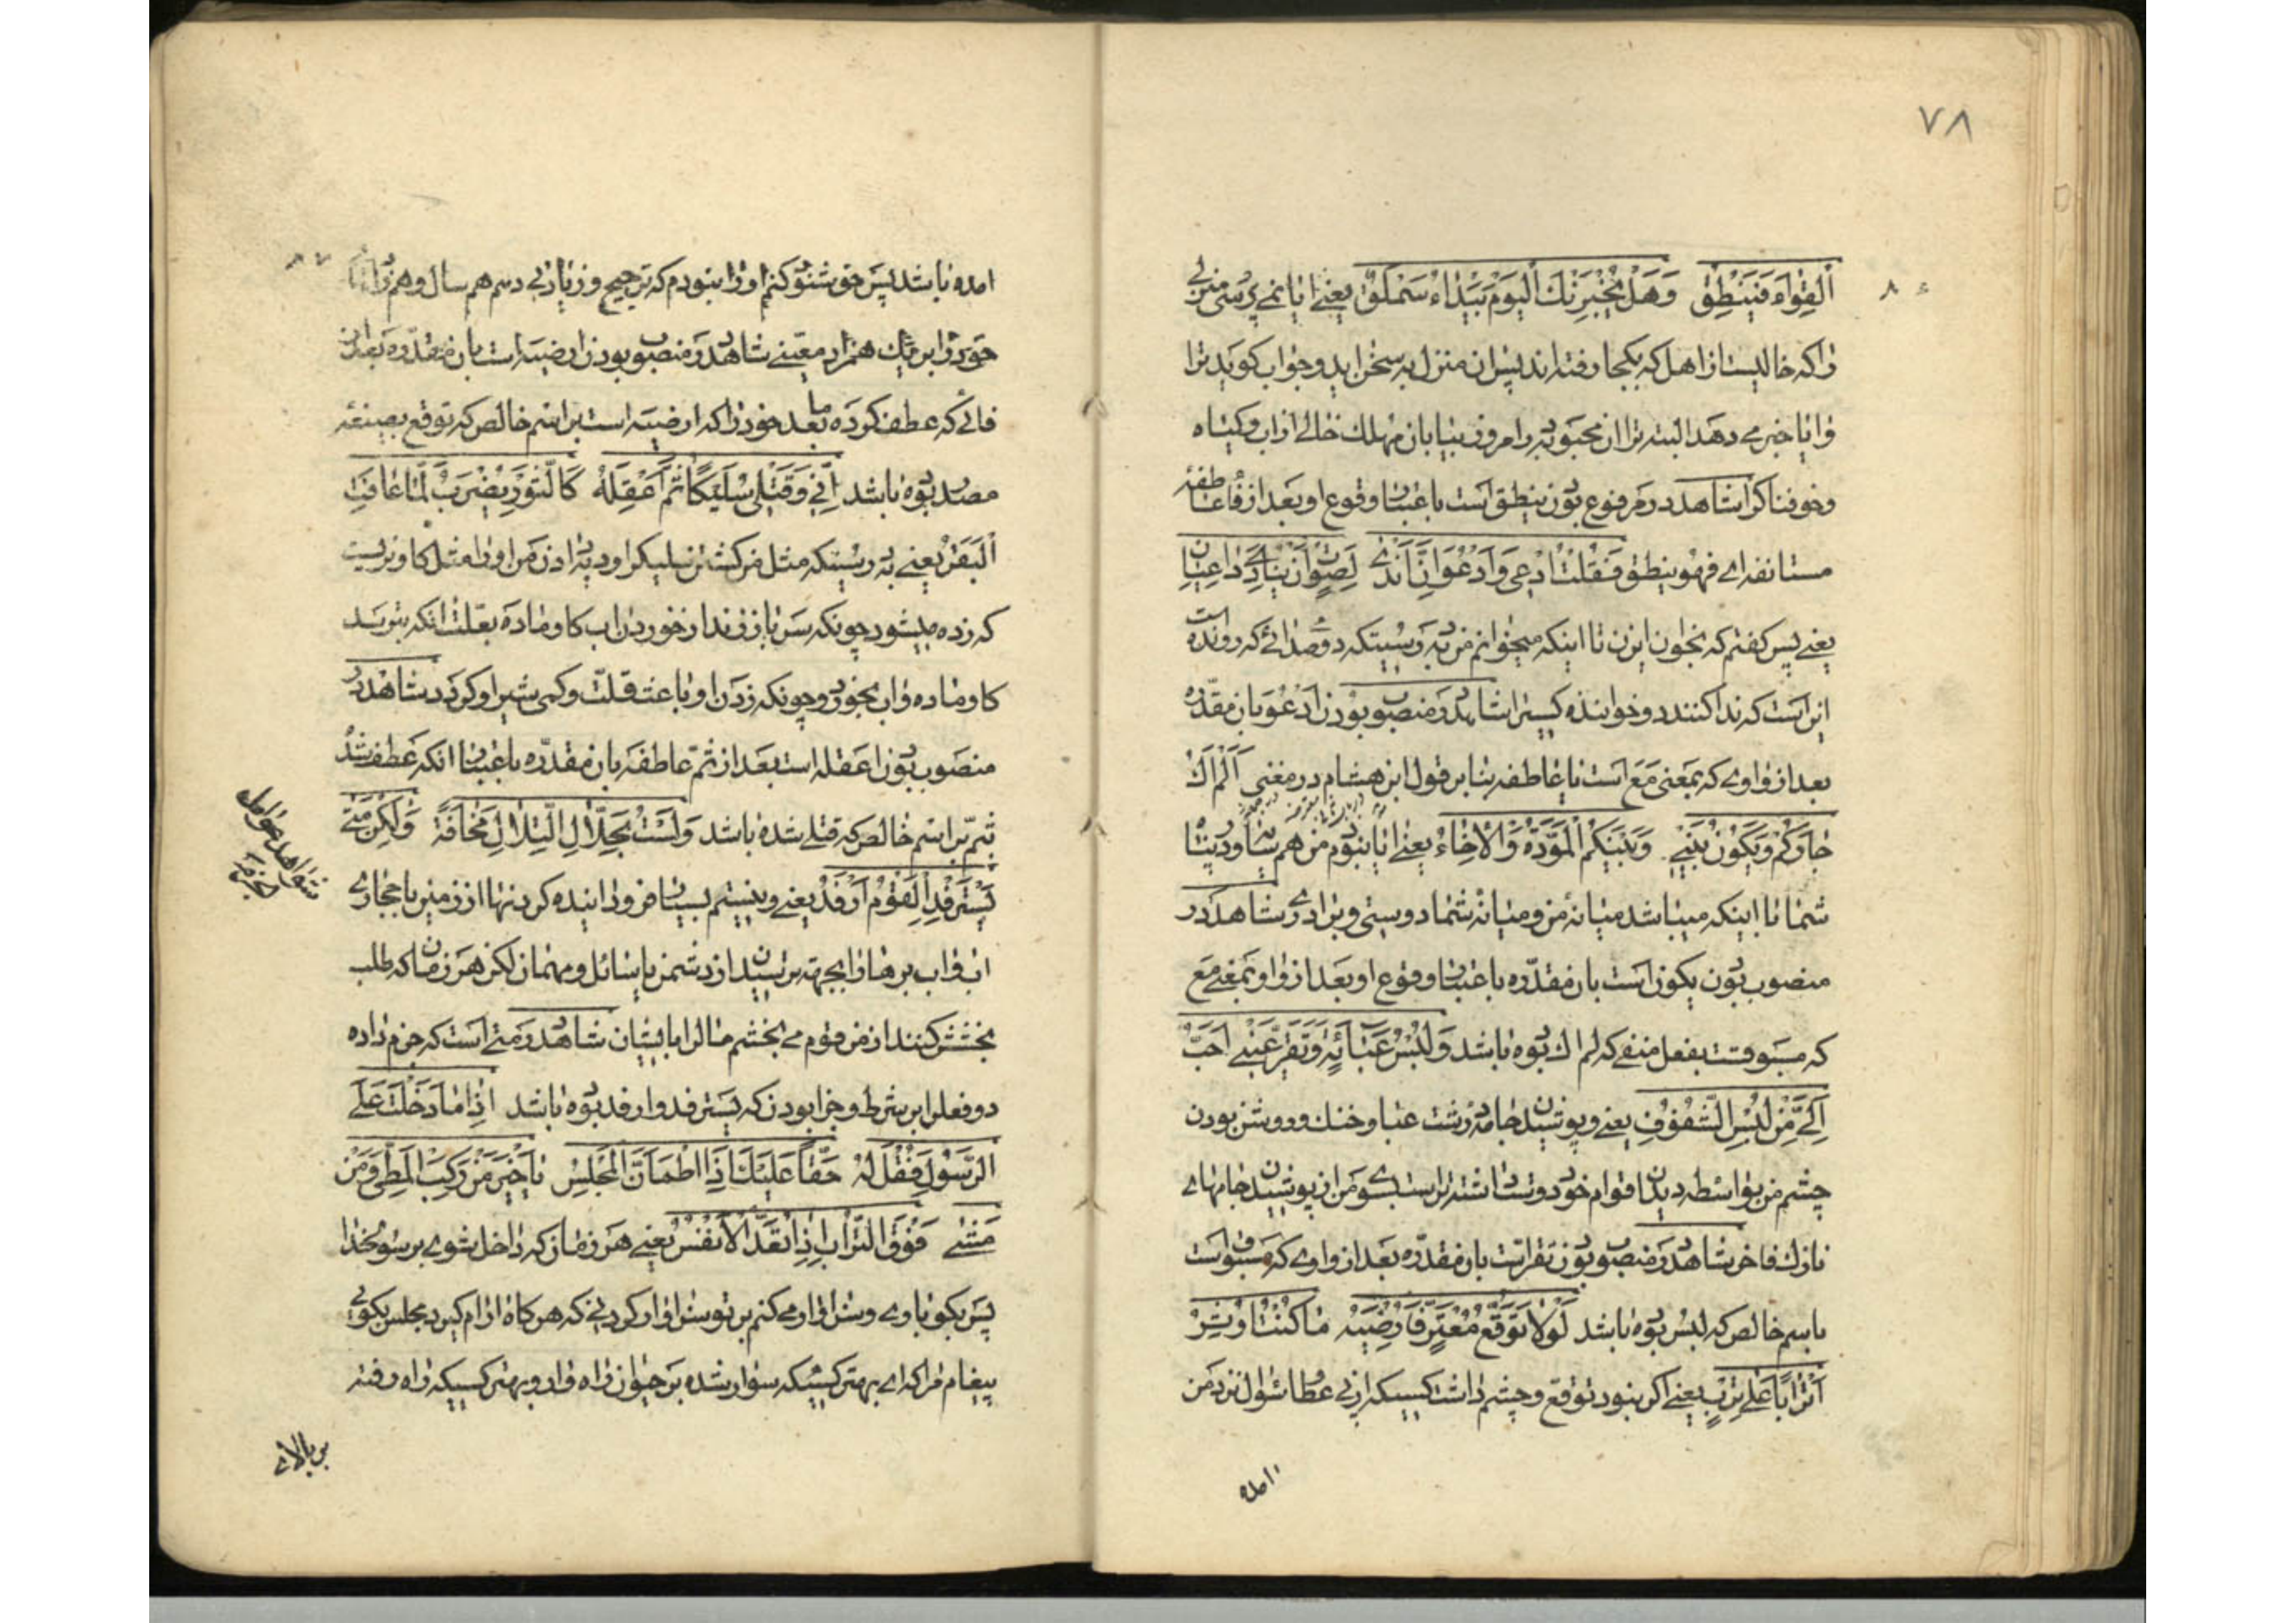 ٧٨
القواء فينطق وهل يخبرنك اليوم بيداء سملق يعنى ايا نمى پرسى منزلى
را كه خاليست از اهل كه بكجا رفته اند پس ان منزل به سخن ايد و جواب كويد ترا
و ايا خبر مى دهد البته ترا ان محبوبه را امروز بيابان مهلك خالى از اب و كياه
و خوفناك شاهد در مرفوع بودن ينطق است باعتبار وقوع او بعد از فاء عاطفه
مستانفه اى فهو ينطق فقلت ادعى وادعو ان اندى لصوت ان ينادى داعيان
يعنى پس كفتم كه بخوان اى زن تا اينكه ميخوانم من بدرستيكه دو صدائى كه رونده است
اين است كه ندا كنند دو خواننده كسى را شاهد در منصوب بودن ادعو بان مقدره
بعد از واوى كه بمعنى مع است يا عاطفه بنا بر قول ابن هشام در مغنى الم اك
جاركم ويكون بينى وبينكم المودة والاخاء يعنى ايا نبودم من همسايه و در پناه
شما تا اينكه ميباشد ميانه من و ميانه شما دوستى و برادرى شاهد در
منصوب بودن يكون است بان مقدره باعتبار وقوع او بعد از واو بمعنى مع
كه مسبوقست بفعل منفى كه لم اك بوده باشد ولبس عبائة وتقر عينى احب
الى من لبس الشفوف يعنى و پوشيدن جامه درشت عبا و خنك و روشن بودن
چشم من بواسطه ديدن اقوام خود دوست داشته تر است بسوى من از پوشيدن جامهاى
نازك فاخر شاهد در منصوب بودن تقر است بان مقدره بعد از واوى كه مسبوقست
باسم خالص كه لبس بوده باشد لولا توقع معتر فارضيه ما كنت اوثر
اترابا على ترب يعنى اكر نبود توقع و چشم داشت كسيكه از پى عطا سئوال نزد من
امده
امده باشد پس خوشنود كنم او را نبودم كه ترجيح و زيادتى دهم هم سال و هم
خود را بر يك همزاد معينى شاهد در منصوب بودن ارضيه است بان مقدره بعد از
فائى كه عطف كرده ما بعد خود را كه ارضيه است بر اسم خالص كه توقع بصيغه
مصدر بوده باشد انى وقتلى سليكا ثم اعقله كالثور يضرب لما عافت
البقر يعنى بدرستيكه مثل من كشتن سليك را و ديه دادن من او را مثل كاو نريست
كه زده ميشود چونكه سر باز زند از خوردن اب كاو ماده بعلت انكه بترسد
كاو ماده و اب بخورد و چونكه زدن او باعث قلت و كمى شير او كردد شاهد در
منصوب بودن اعقله است بعد از ثم عاطفه بان مقدره باعتبار انكه عطف شد
بثم بر اسم خالص كه قتلى شده باشد ولست بحلال التلال مخافة ولكن متى
يسترفد القوم ارفد يعنى و نيستم بسيار فرود اينده كردنها از زمين يا مجارى
اب بجهة ترسيدن از دشمن يا سائل و مهمان لكن هر زمان كه طلب
بخشش كنند از من قوم مى بخشم مال را بايشان شاهد در متى است كه جزم داده
دو فعل را بر شرط و جزا بودن كه يسترفد و ارفد بوده باشد اذ ما دخلت على
الرسول فقل له حقا عليك اذا اطمأن المجلس يا خير من ركب المطى ومن
مشى فوق التراب اذا تعد الانفس يعنى هر زمان كه داخل شوى بر رسول خدا
پس بكو باوى كه هركاه ارام كيرد مجلس بكوئى
پيغام مرا كه اى بهترين كسيكه سوار شده بر حيوان راه وار و بهترين كسيكه راه رفته
شواهد عوامل
بر بالاى